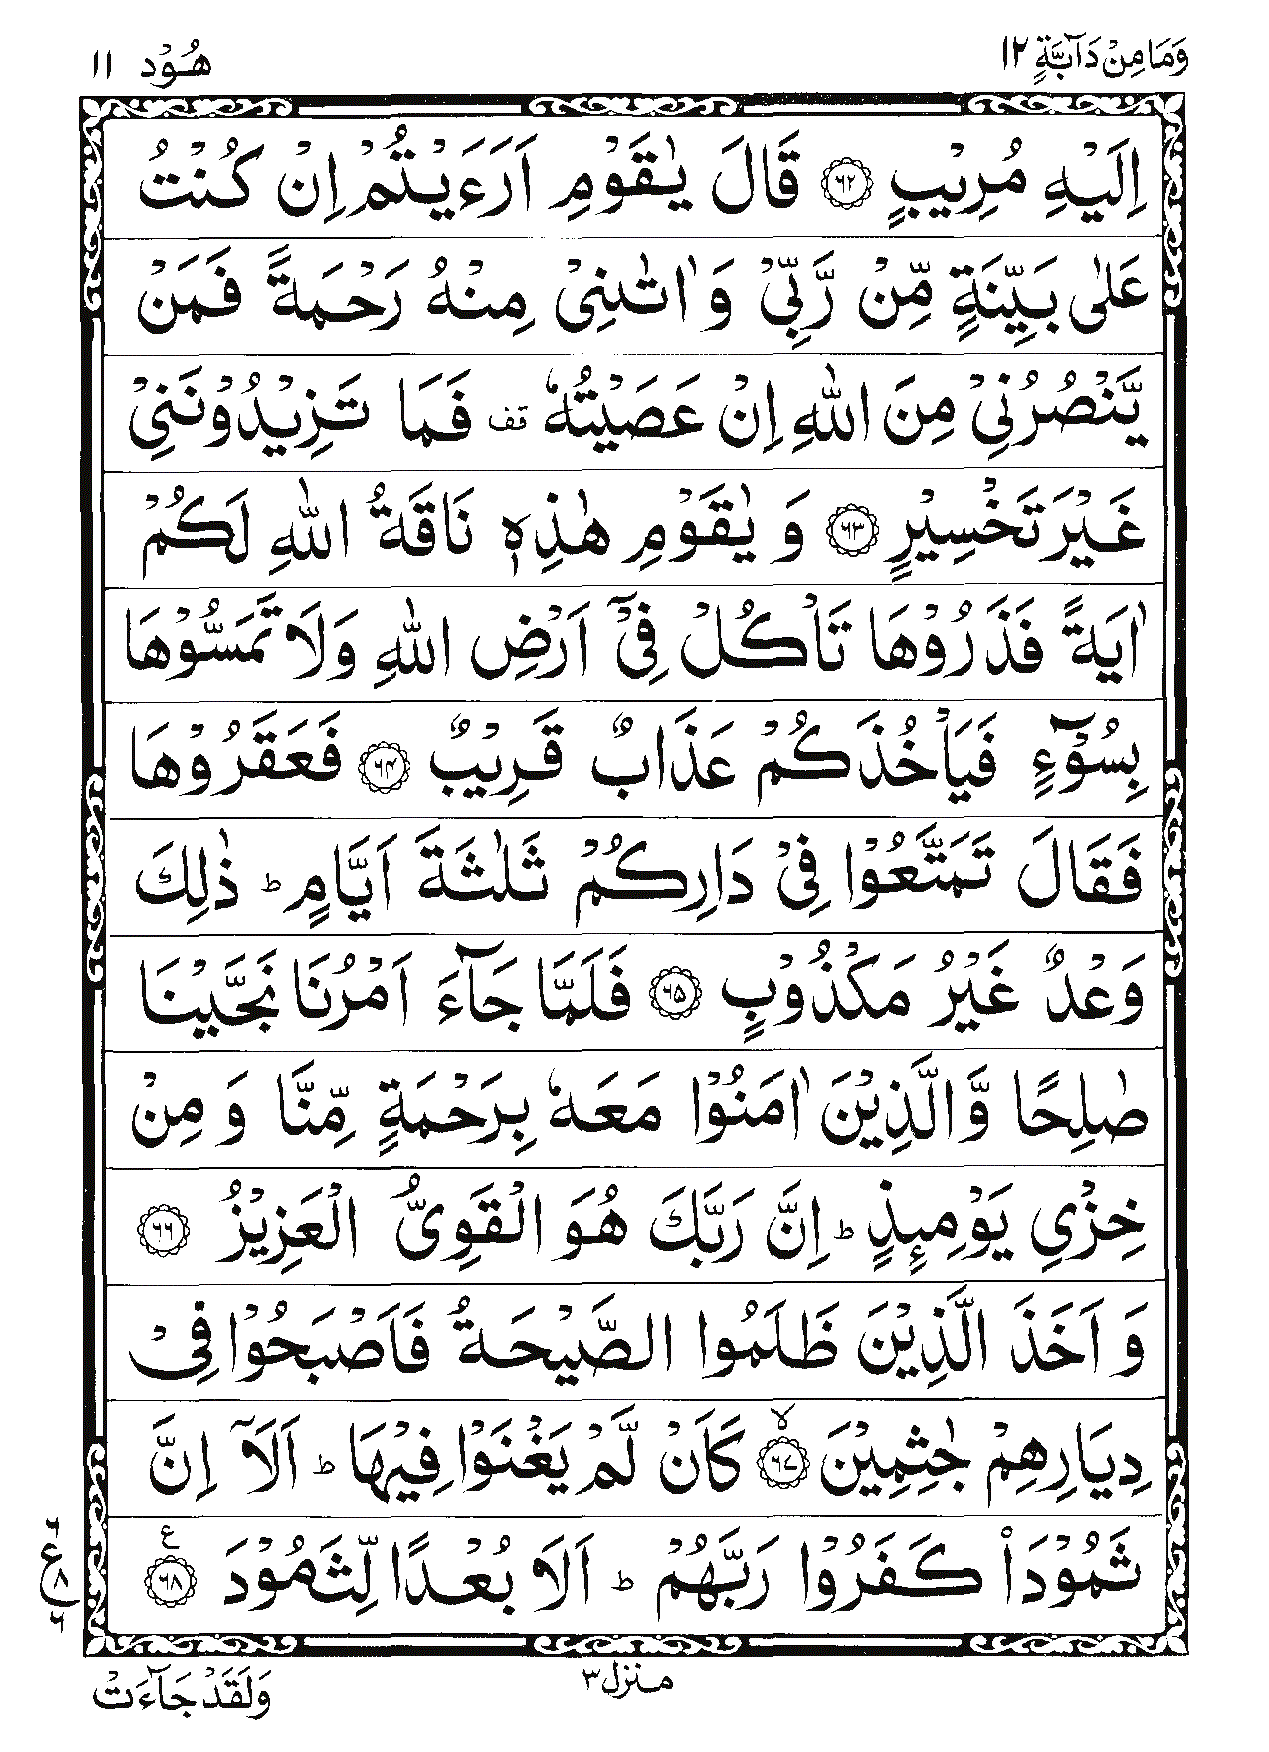 وَمَا مِنْ دَآبَّةٍ ١٢
هُوْد ١١
اِلَيْهِ مُرِيْبٍ ﴿٦٢﴾ قَالَ يٰقَوْمِ اَرَءَيْتُمْ اِنْ كُنْتُ
عَلٰى بَيِّنَةٍ مِّنْ رَّبِّيْ وَ اٰتٰىنِيْ مِنْهُ رَحْمَةً فَمَنْ
يَّنْصُرُنِيْ مِنَ اللّٰهِ اِنْ عَصَيْتُهٗ قف فَمَا تَزِيْدُوْنَنِيْ
غَيْرَ تَخْسِيْرٍ ﴿٦٣﴾ وَ يٰقَوْمِ هٰذِهٖ نَاقَةُ اللّٰهِ لَكُمْ
اٰيَةً فَذَرُوْهَا تَاْكُلْ فِيْٓ اَرْضِ اللّٰهِ وَلَا تَمَسُّوْهَا
بِسُوْٓءٍ فَيَاْخُذَكُمْ عَذَابٌ قَرِيْبٌ ﴿٦٤﴾ فَعَقَرُوْهَا
فَقَالَ تَمَتَّعُوْا فِيْ دَارِكُمْ ثَلٰثَةَ اَيَّامٍ ط ذٰلِكَ
وَعْدٌ غَيْرُ مَكْذُوْبٍ ﴿٦٥﴾ فَلَمَّا جَآءَ اَمْرُنَا نَجَّيْنَا
صٰلِحًا وَّالَّذِيْنَ اٰمَنُوْا مَعَهٗ بِرَحْمَةٍ مِّنَّا وَ مِنْ
خِزْيِ يَوْمِىِٕذٍ ط اِنَّ رَبَّكَ هُوَ الْقَوِيُّ الْعَزِيْزُ ﴿٦٦﴾
وَ اَخَذَ الَّذِيْنَ ظَلَمُوا الصَّيْحَةُ فَاَصْبَحُوْا فِيْ
دِيَارِهِمْ جٰثِمِيْنَ ﴿٦٧﴾ لا كَاَنْ لَّمْ يَغْنَوْا فِيْهَا ط اَلَآ اِنَّ
ثَمُوْدَا۟ كَفَرُوْا رَبَّهُمْ ط اَلَا بُعْدًا لِّثَمُوْدَ ﴿٦٨﴾ ع
٢ ع ٨ ٦
منزل ٣
وَلَقَدْ جَآءَتْ